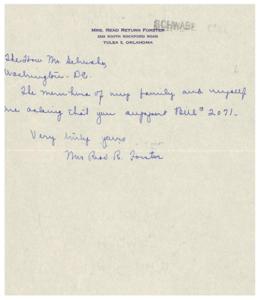 MRS. READ RETURN FORSTER
SOUTH ROCKFORD ROAD
TULSA 5, OKLAHOMA
SCHWABE
The Hon. Mr. Schwabe,
Washington - D.C.
The members of my family and myself
are asking that you support Bill # 2071.
Very truly yours
Mrs Read R. Forster